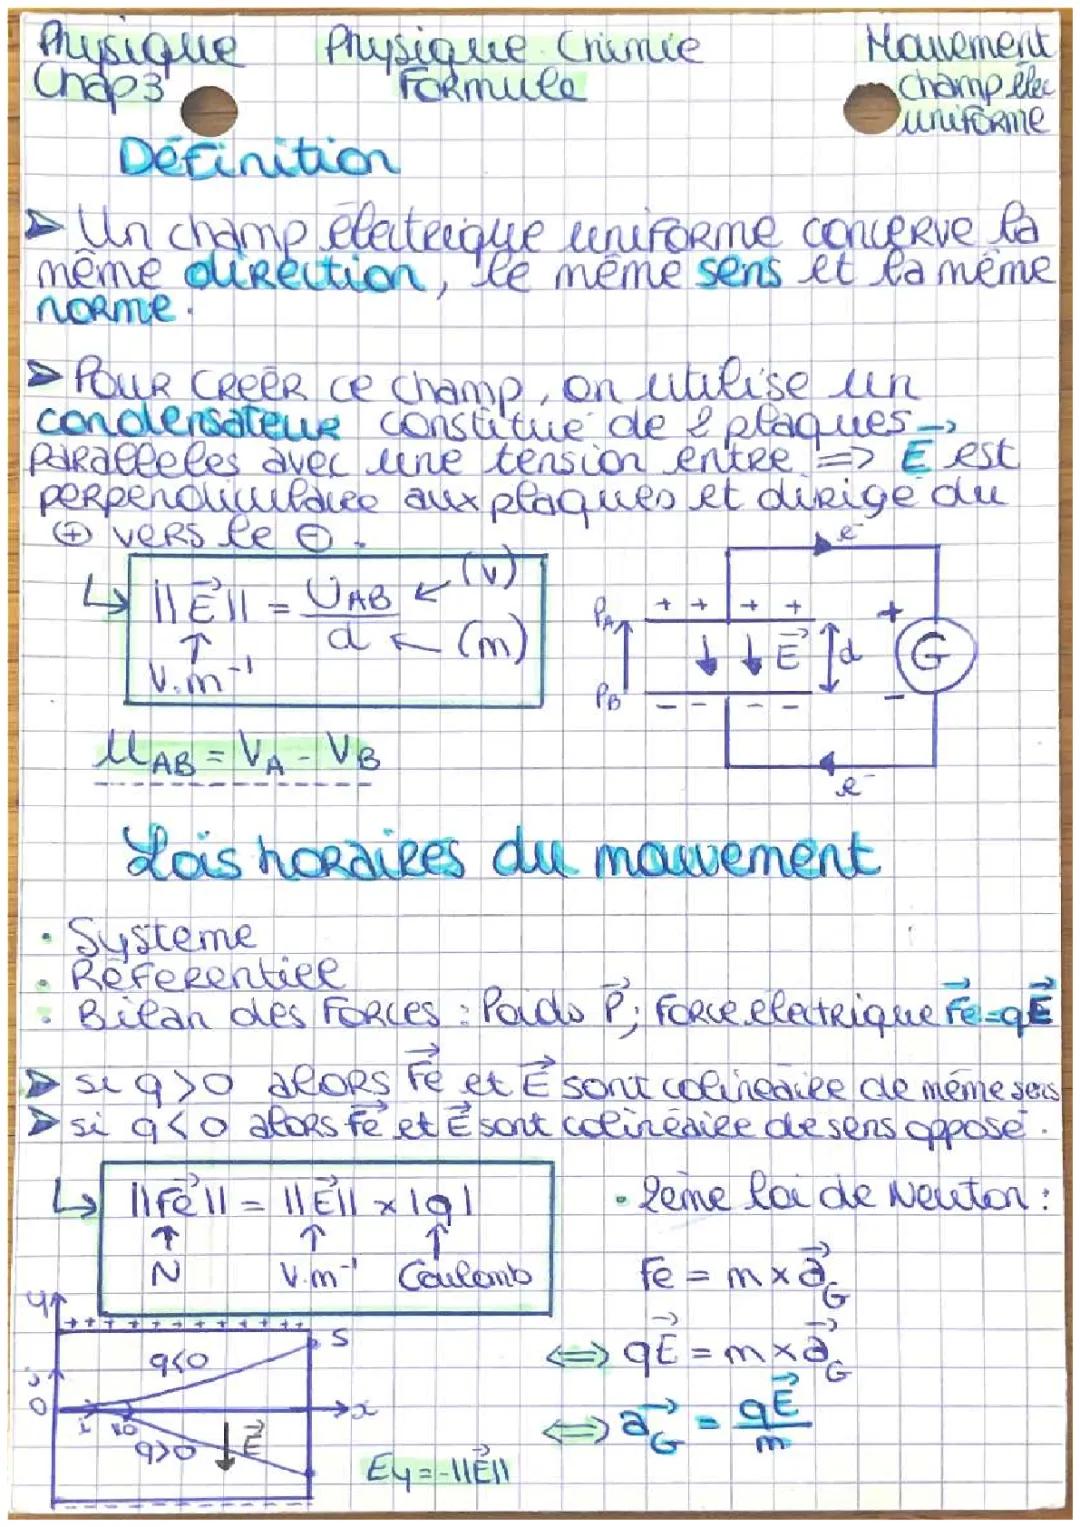 Physique Physique Chimie Mouvement
Chap 3 Formule champ élec
uniforme
Définition
➤ Un champ électrique uniforme concerve la
même direction, le même sens et la même
norme.
➤ Pour creer ce champ, on utilise un
condensateur constitué de 2 plaques
paralleles avec une tension entre => E⃗ est
perpendiculaire aux plaques et dirigé du
⊕ vers le ⊖.
↳ ||E⃗|| = UAB / d ← (V) ← (m)
↑
V.m⁻¹
UAB = VA - VB
e⁻
PA + + + + +
E⃗ d G
PB - - - - -
e⁻
Lois horaires du mouvement
• Systeme
• Réferentiel
• Bilan des forces : Poids P⃗; Force électrique F⃗e=qE⃗
➤ si q>0 alors F⃗e et E⃗ sont colinéaire de même sens
➤ si q<0 alors F⃗e et E⃗ sont colinéaire de sens opposé.
↳ ||F⃗e|| = ||E⃗|| x |q|
↑ ↑ ↑
N V.m⁻¹ Coulomb
• 2ème loi de Newton :
Fe = m x a⃗G
⇔ qE⃗ = m x a⃗G
⇔ a⃗G = qE⃗ / m
y
+ + + + + + + + + + +
q<0 S
O x
q>0 E⃗
Ey = -||E⃗||